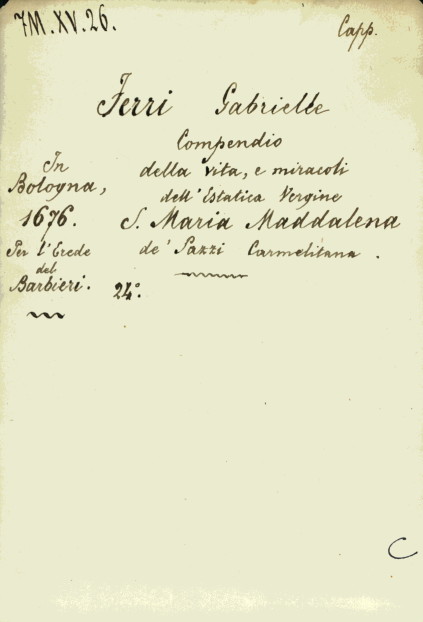 7M.XV.26.
Capp.
Ferri Gabrielle
Compendio
della vita, e miracoli
dell'Estatica Vergine
S. Maria Maddalena
de' Pazzi Carmelitana.
In
Bologna,
1676.
Per l'Erede
del
Barbieri.
24°.
C